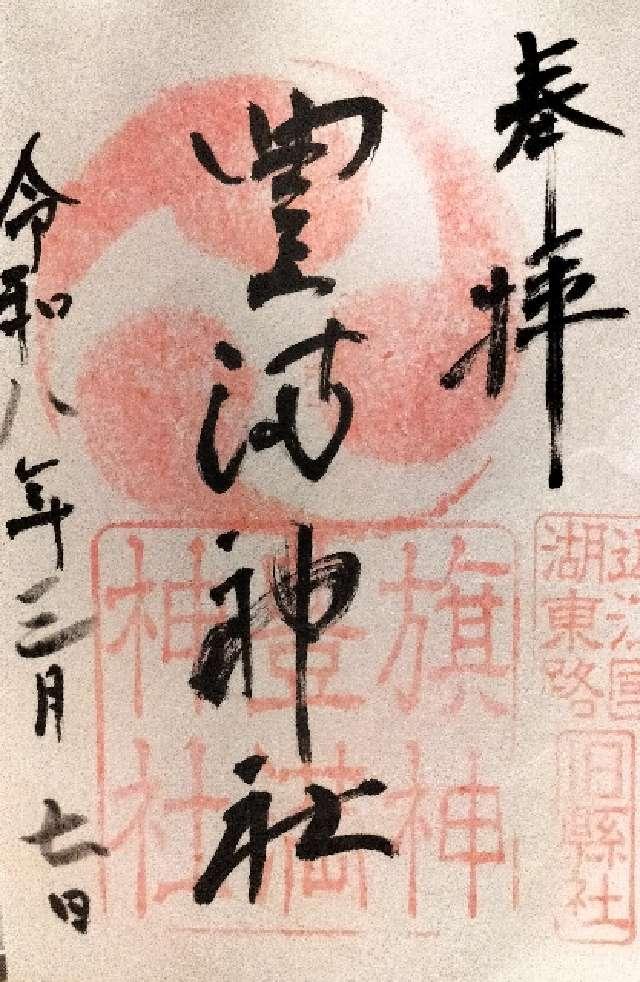 奉拝
豊満神社
令和八年三月七日
旗神
豊満
神社
近江國
湖東路
旧縣社